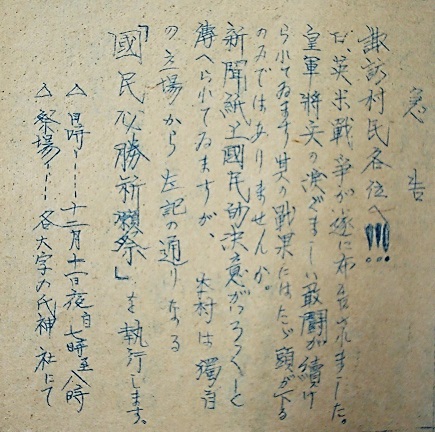 急告
諏訪村民各位へ!!!…
対英米戦争が遂に布告されました。
皇軍将兵の涙ぐましい敢闘が続け
られてゐます其の戦果にはたゞ頭が下る
のみではありませんか。
新聞紙上國民的決意がつろくと
傳へられてゐますが、本村は獨自
の立場から左記の通りなる
「國民必勝祈願祭」を執行します。
△日時……十二月十一日夜自七時至八時
△祭場……各大字の氏神社にて